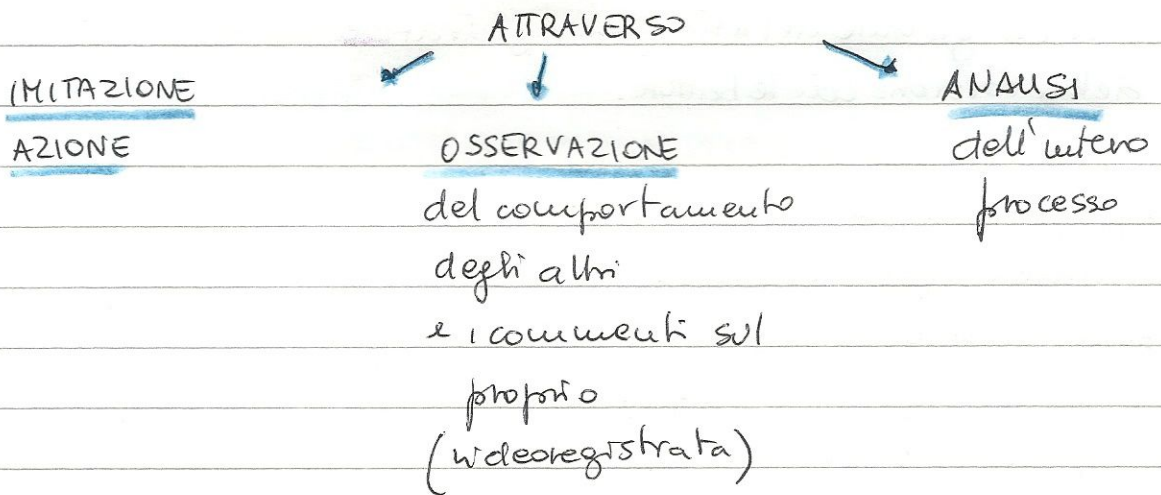 ATTRAVERSO
IMITAZIONE
AZIONE
OSSERVAZIONE
del comportamento
degli altri
e i commenti sul
proprio
(videoregistrata)
ANALISI
dell'intero
processo